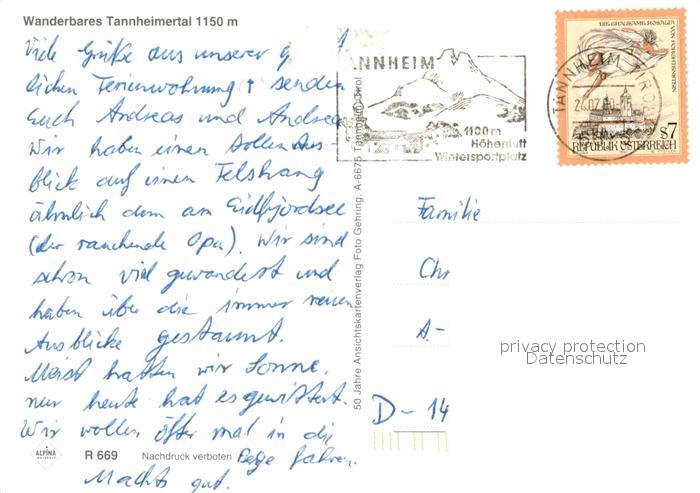 Wanderbares Tannheimertal 1150 m
Viele Grüße aus unserer g
lichen Ferienwohnung senden
Euch Andreas und Andrea
Wir haben einen tollen Aus-
blick auf einen Felshang
ähnlich dem am Eidfjordsee
(der rauchende Opa). Wir sind
schon viel gewandert und
haben über die immer neuen
Ausblicke gestaunt.
Meist hatten wir Sonne,
nur heute hat es gewittert.
Wir wollen öfter mal in die
Berge fahren.
Machts gut.
ALPINA
R 669
Nachdruck verboten
50 Jahre Ansichtskartenverlag Foto Gehring, A-6675 Tannheim/Tirol
TANNHEIM
1100m
Höhenluft
Wintersportplatz
TANNHEIM TIROL
b
DIE GRAUSAME ROSALIA
VON FORCHTENSTEIN
S7
REPUBLIK ÖSTERREICH
Familie
Chr
A-
D-14
privacy protection
Datenschutz